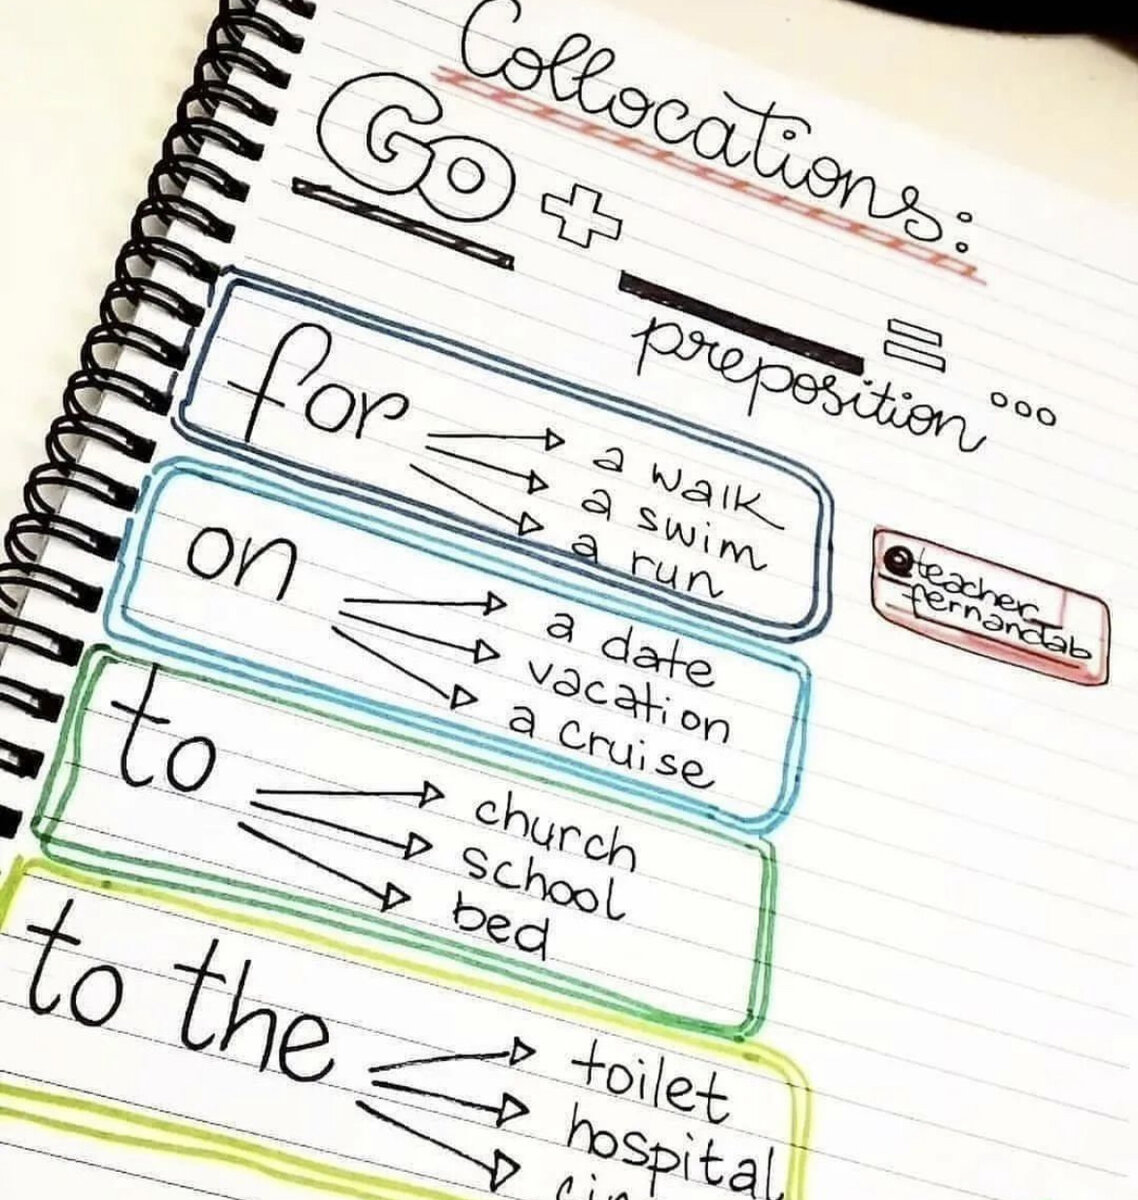 Collocations:
Go + ___ = ...
preposition
for
a walk
a swim
a run
@teacher_
fernandab
on
a date
vacation
a cruise
to
church
school
bed
to the
toilet
hospital